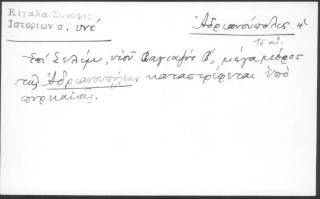 Κιγάλα, Σύνοψις
Ἱστοριῶν σ. υνέ
Ἀδριανούπολις
16 αἰ.
Ἐπί Σελίμ, υἱοῦ Βαγιαζήτ Β', μέγα μέρος
τῆς Ἀδριανουπόλεως καταστρέφεται ὑπό
πυρκαϊᾶς.